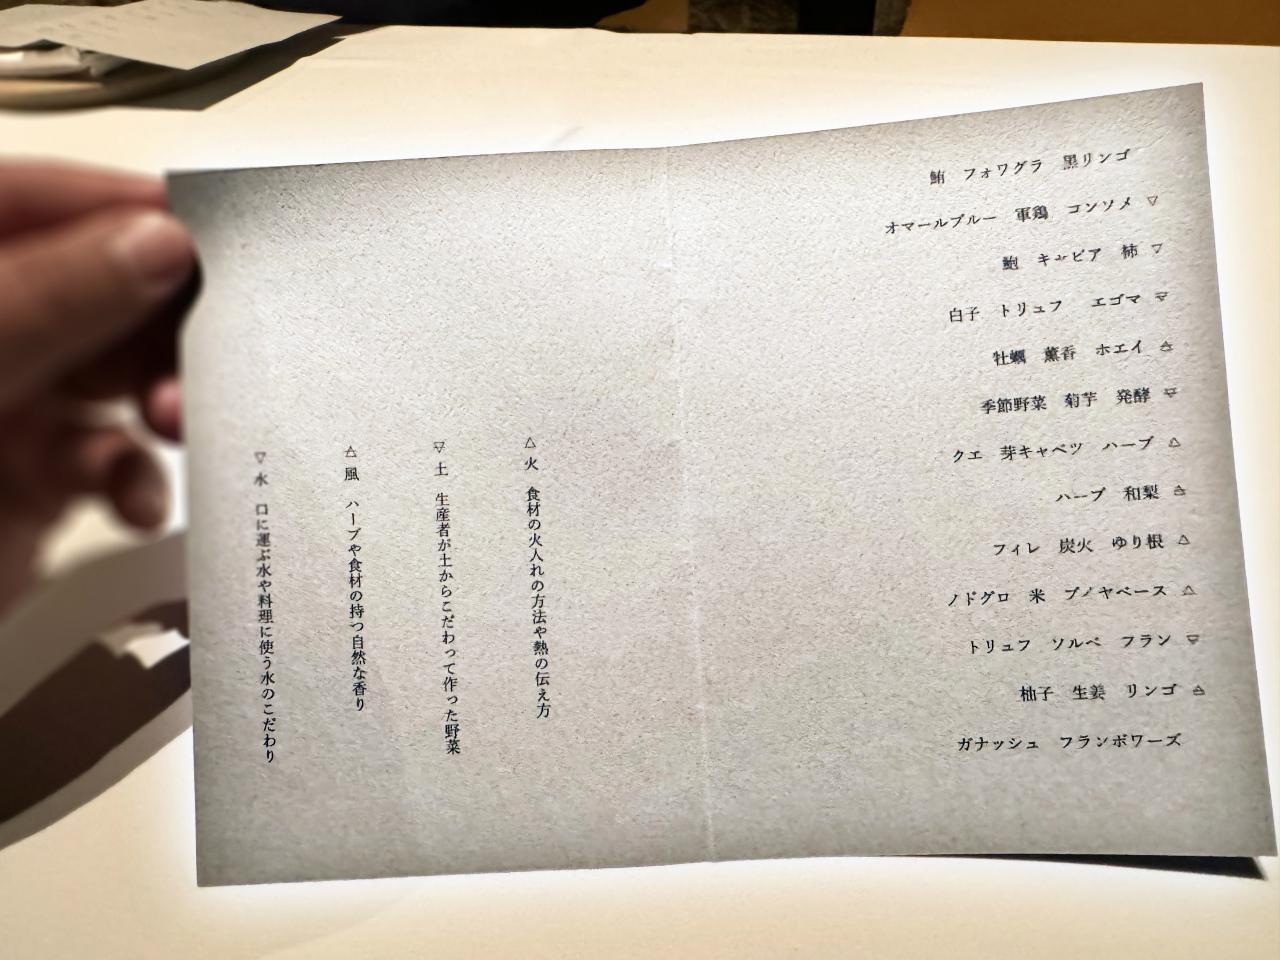 鮪　フォワグラ　黒リンゴ
オマールブルー　軍鶏　コンソメ ▽
鮑　キャビア　柿 ▽
白子　トリュフ　エゴマ 🜃
牡蠣　薫香　ホエイ 🜁
季節野菜　菊芋　発酵 🜃
クエ　芽キャベツ　ハーブ △
ハーブ　和梨 🜁
フィレ　炭火　ゆり根 △
ノドグロ　米　ブイヤベース △
トリュフ　ソルベ　フラン 🜃
柚子　生姜　リンゴ 🜁
ガナッシュ　フランボワーズ
△ 火　食材の火入れの方法や熱の伝え方
🜃 土　生産者が土からこだわって作った野菜
🜁 風　ハーブや食材の持つ自然な香り
▽ 水　口に運ぶ水や料理に使う水のこだわり